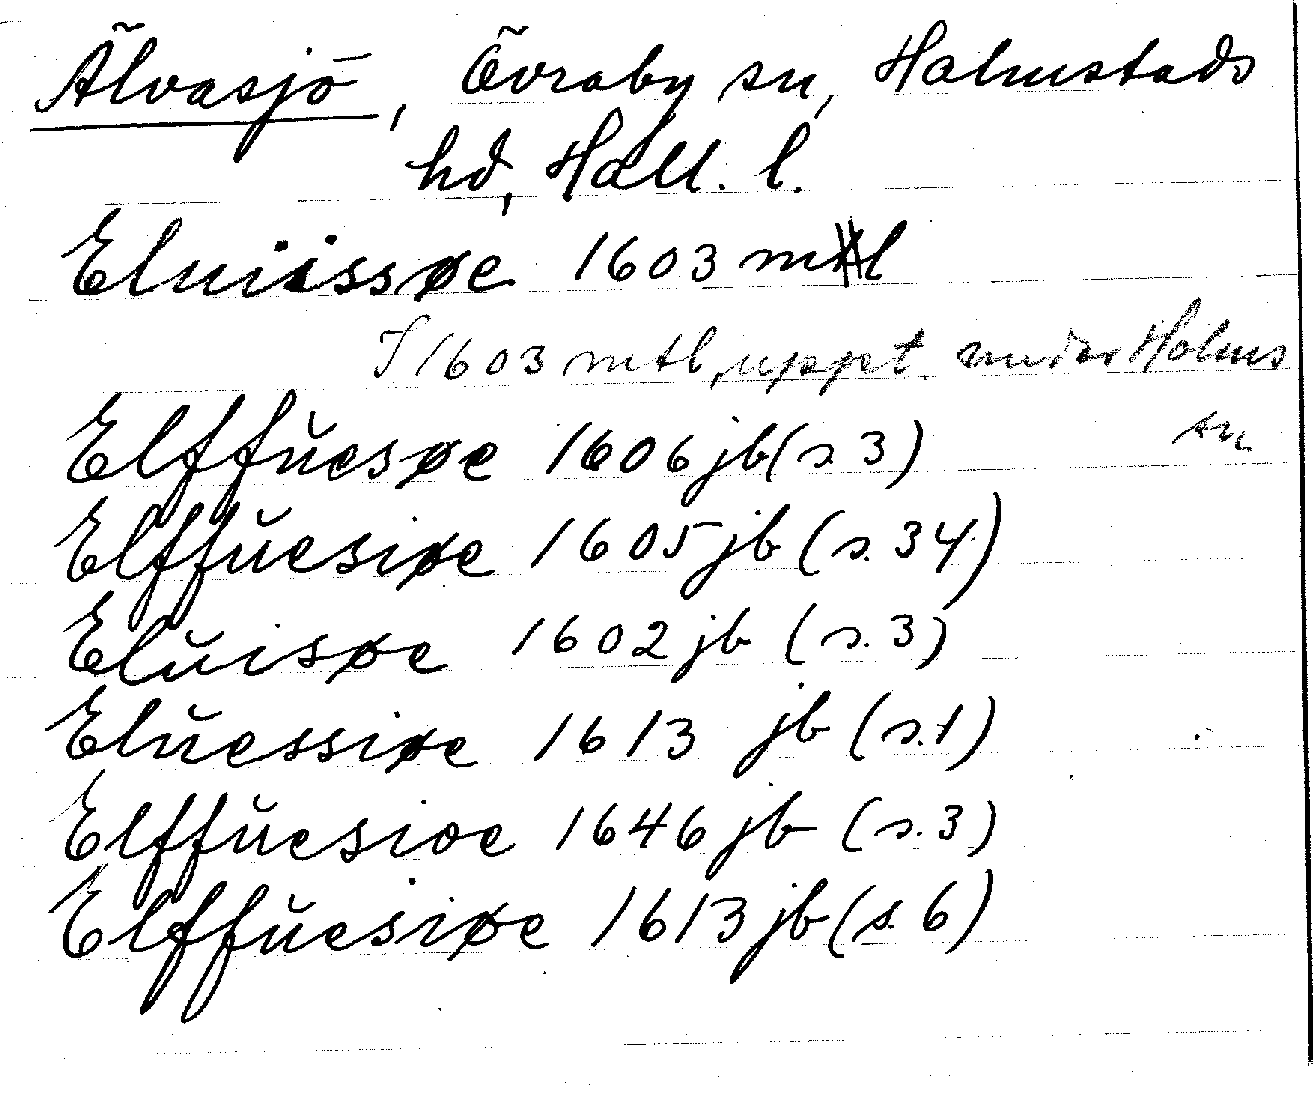 Älvasjö, Övraby sn, Halmstads
hd, Hall. l.
Eluiissøe 1603 mtl
I 1603 mtl, uppt. under Holms
sn
Elffŭesøe 1606 jb (s. 3)
Elffŭesiøe 1605 jb (s. 34)
Elŭisøe 1602 jb (s. 3)
Elŭessiøe 1613 jb (s. 1)
Elffŭesioe 1646 jb (s. 3)
Elffŭesiøe 1613 jb (s. 6)